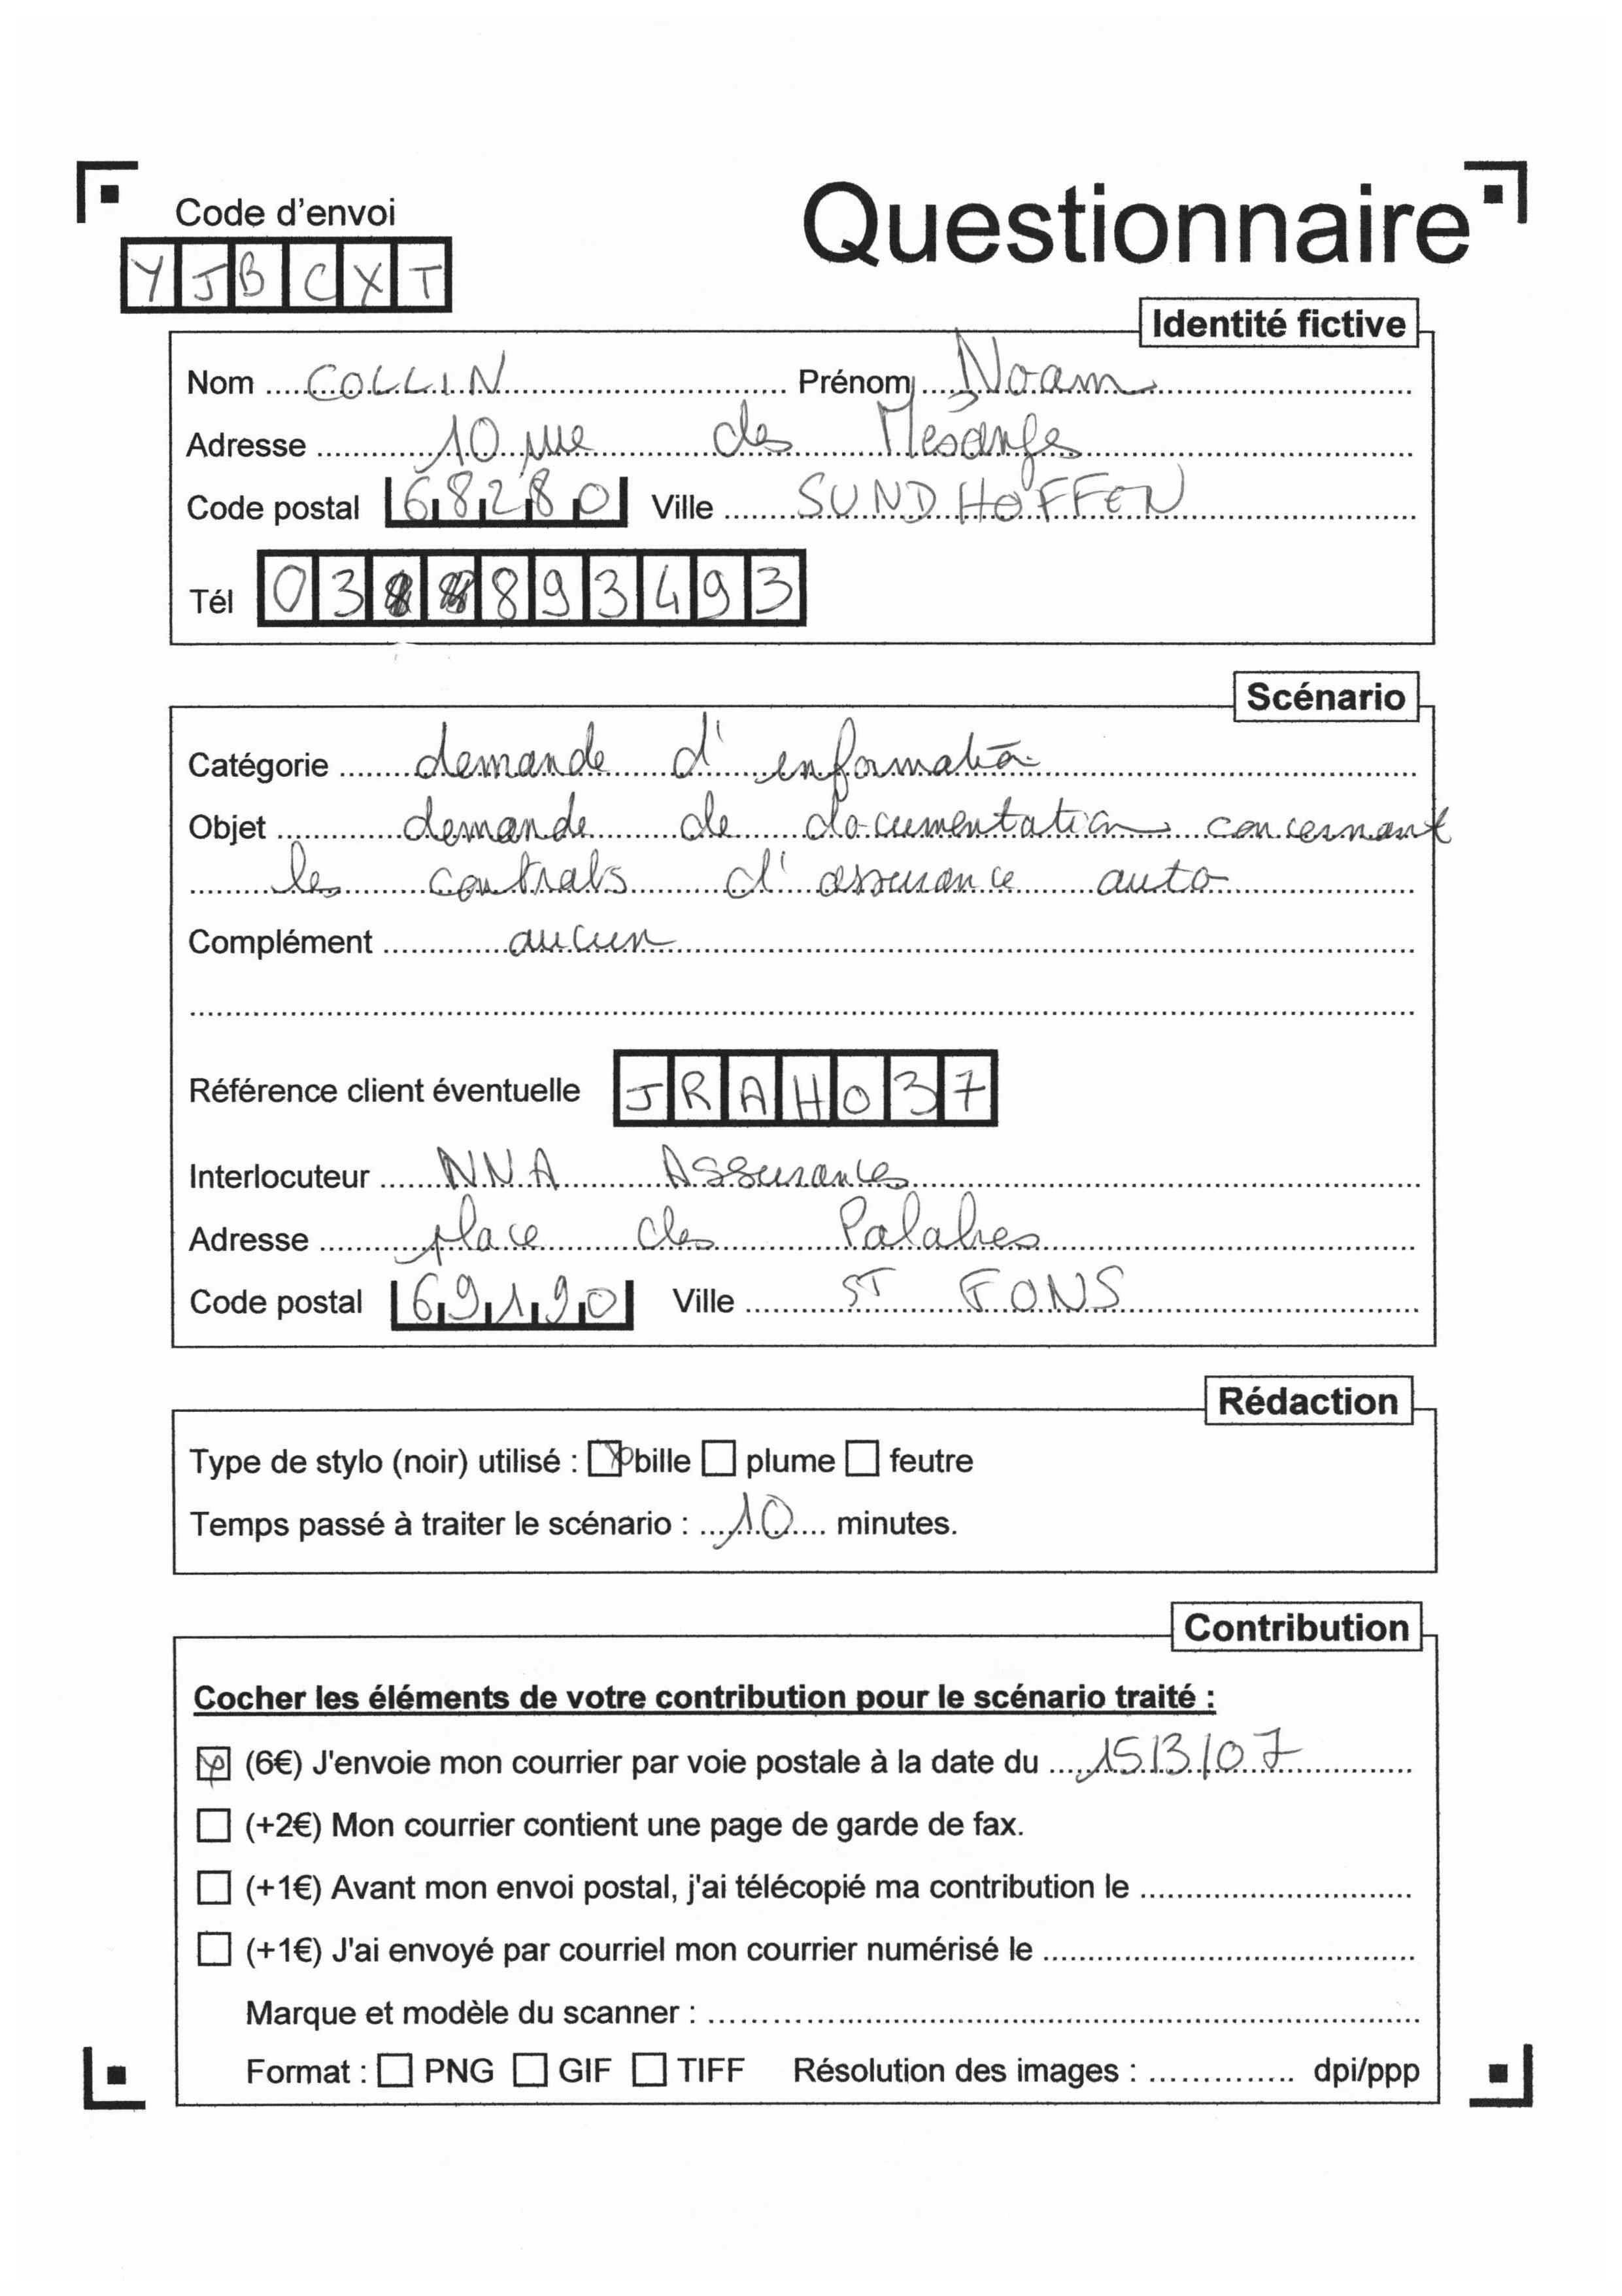 Code d'envoi
Questionnaire
YJBCXT
Identité fictive
Nom COLLIN Prénom Noam
Adresse 10 rue des Mésanges
Code postal 68280 Ville SUNDHOFFEN
Tél 0388893493
Scénario
Catégorie demande d'information
Objet demande de documentation concernant
les contrats d'assurance auto
Complément aucun
Référence client éventuelle JRAHO37
Interlocuteur NNA Assurances
Adresse place des Palabres
Code postal 69190 Ville ST FONS
Rédaction
Type de stylo (noir) utilisé : bille plume feutre
Temps passé à traiter le scénario : 10 minutes.
Contribution
Cocher les éléments de votre contribution pour le scénario traité :
(6€) J'envoie mon courrier par voie postale à la date du 15/3/07
(+2€) Mon courrier contient une page de garde de fax.
(+1€) Avant mon envoi postal, j'ai télécopié ma contribution le
(+1€) J'ai envoyé par courriel mon courrier numérisé le
Marque et modèle du scanner :
Format : PNG GIF TIFF Résolution des images : dpi/ppp